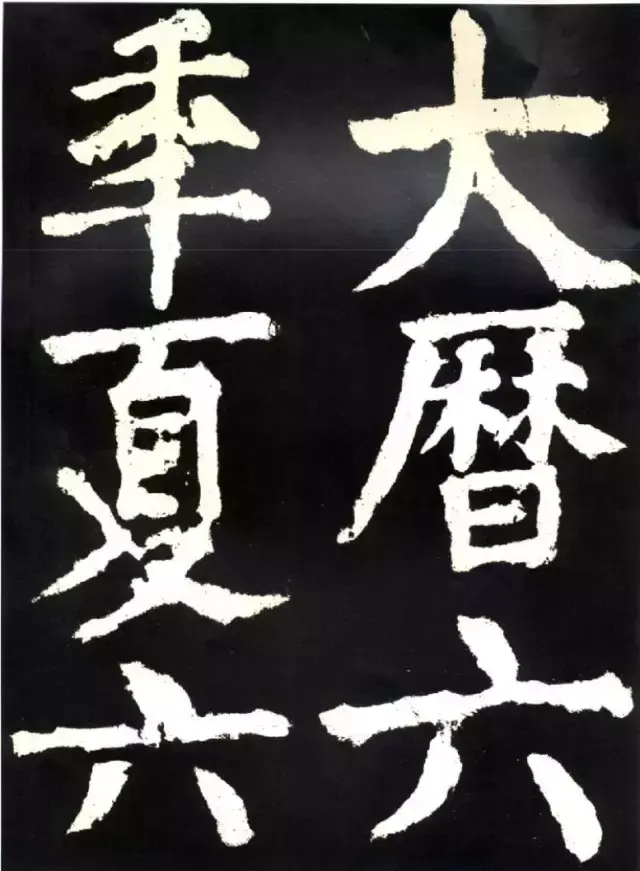 大暦六
年夏六